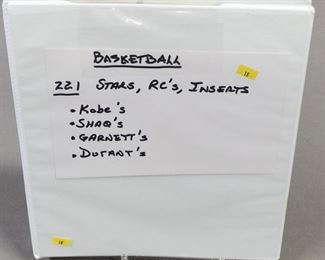 BASKETBALL
18
221 STARS, RC'S, INSERTS
• KOBE'S
• SHAQ'S
• GARNETT'S
• DURANT'S
18